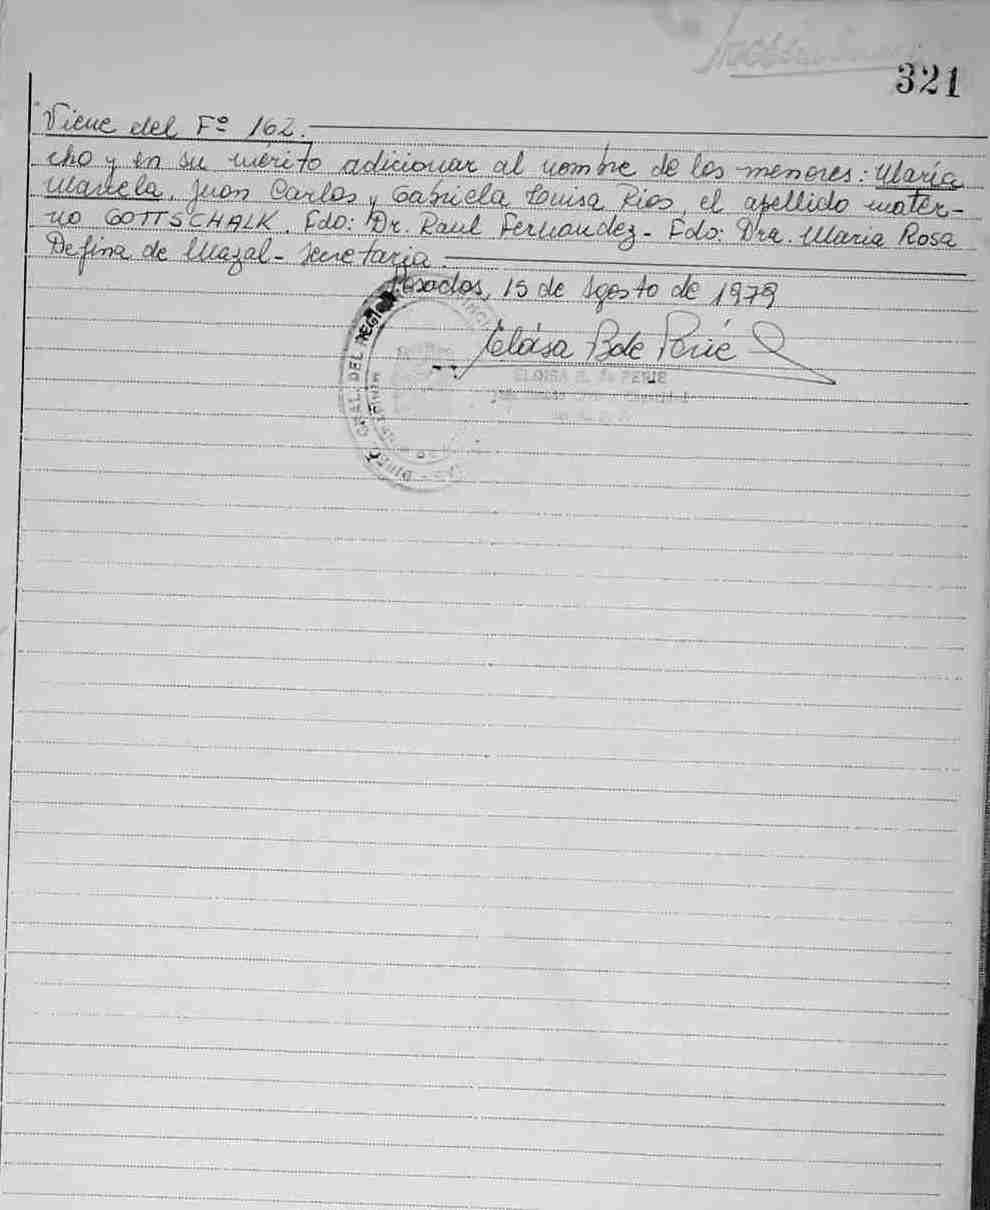 321
Viene del Fº 162.
cho y en su mérito adicionar al nombre de los menores: María
Mariela, Juan Carlos y Gabriela Louisa Rios, el apellido mater-
no GOTTSCHALK. Fdo: Dr. Raul Fernandez - Fdo: Dra. Maria Rosa
Defina de Mazal - Secretaria.
Posadas, 15 de Agosto de 1979
Eloísa B de Perié
ELOISA B. de PERIE
DIREC. GRAL. DEL REGIS